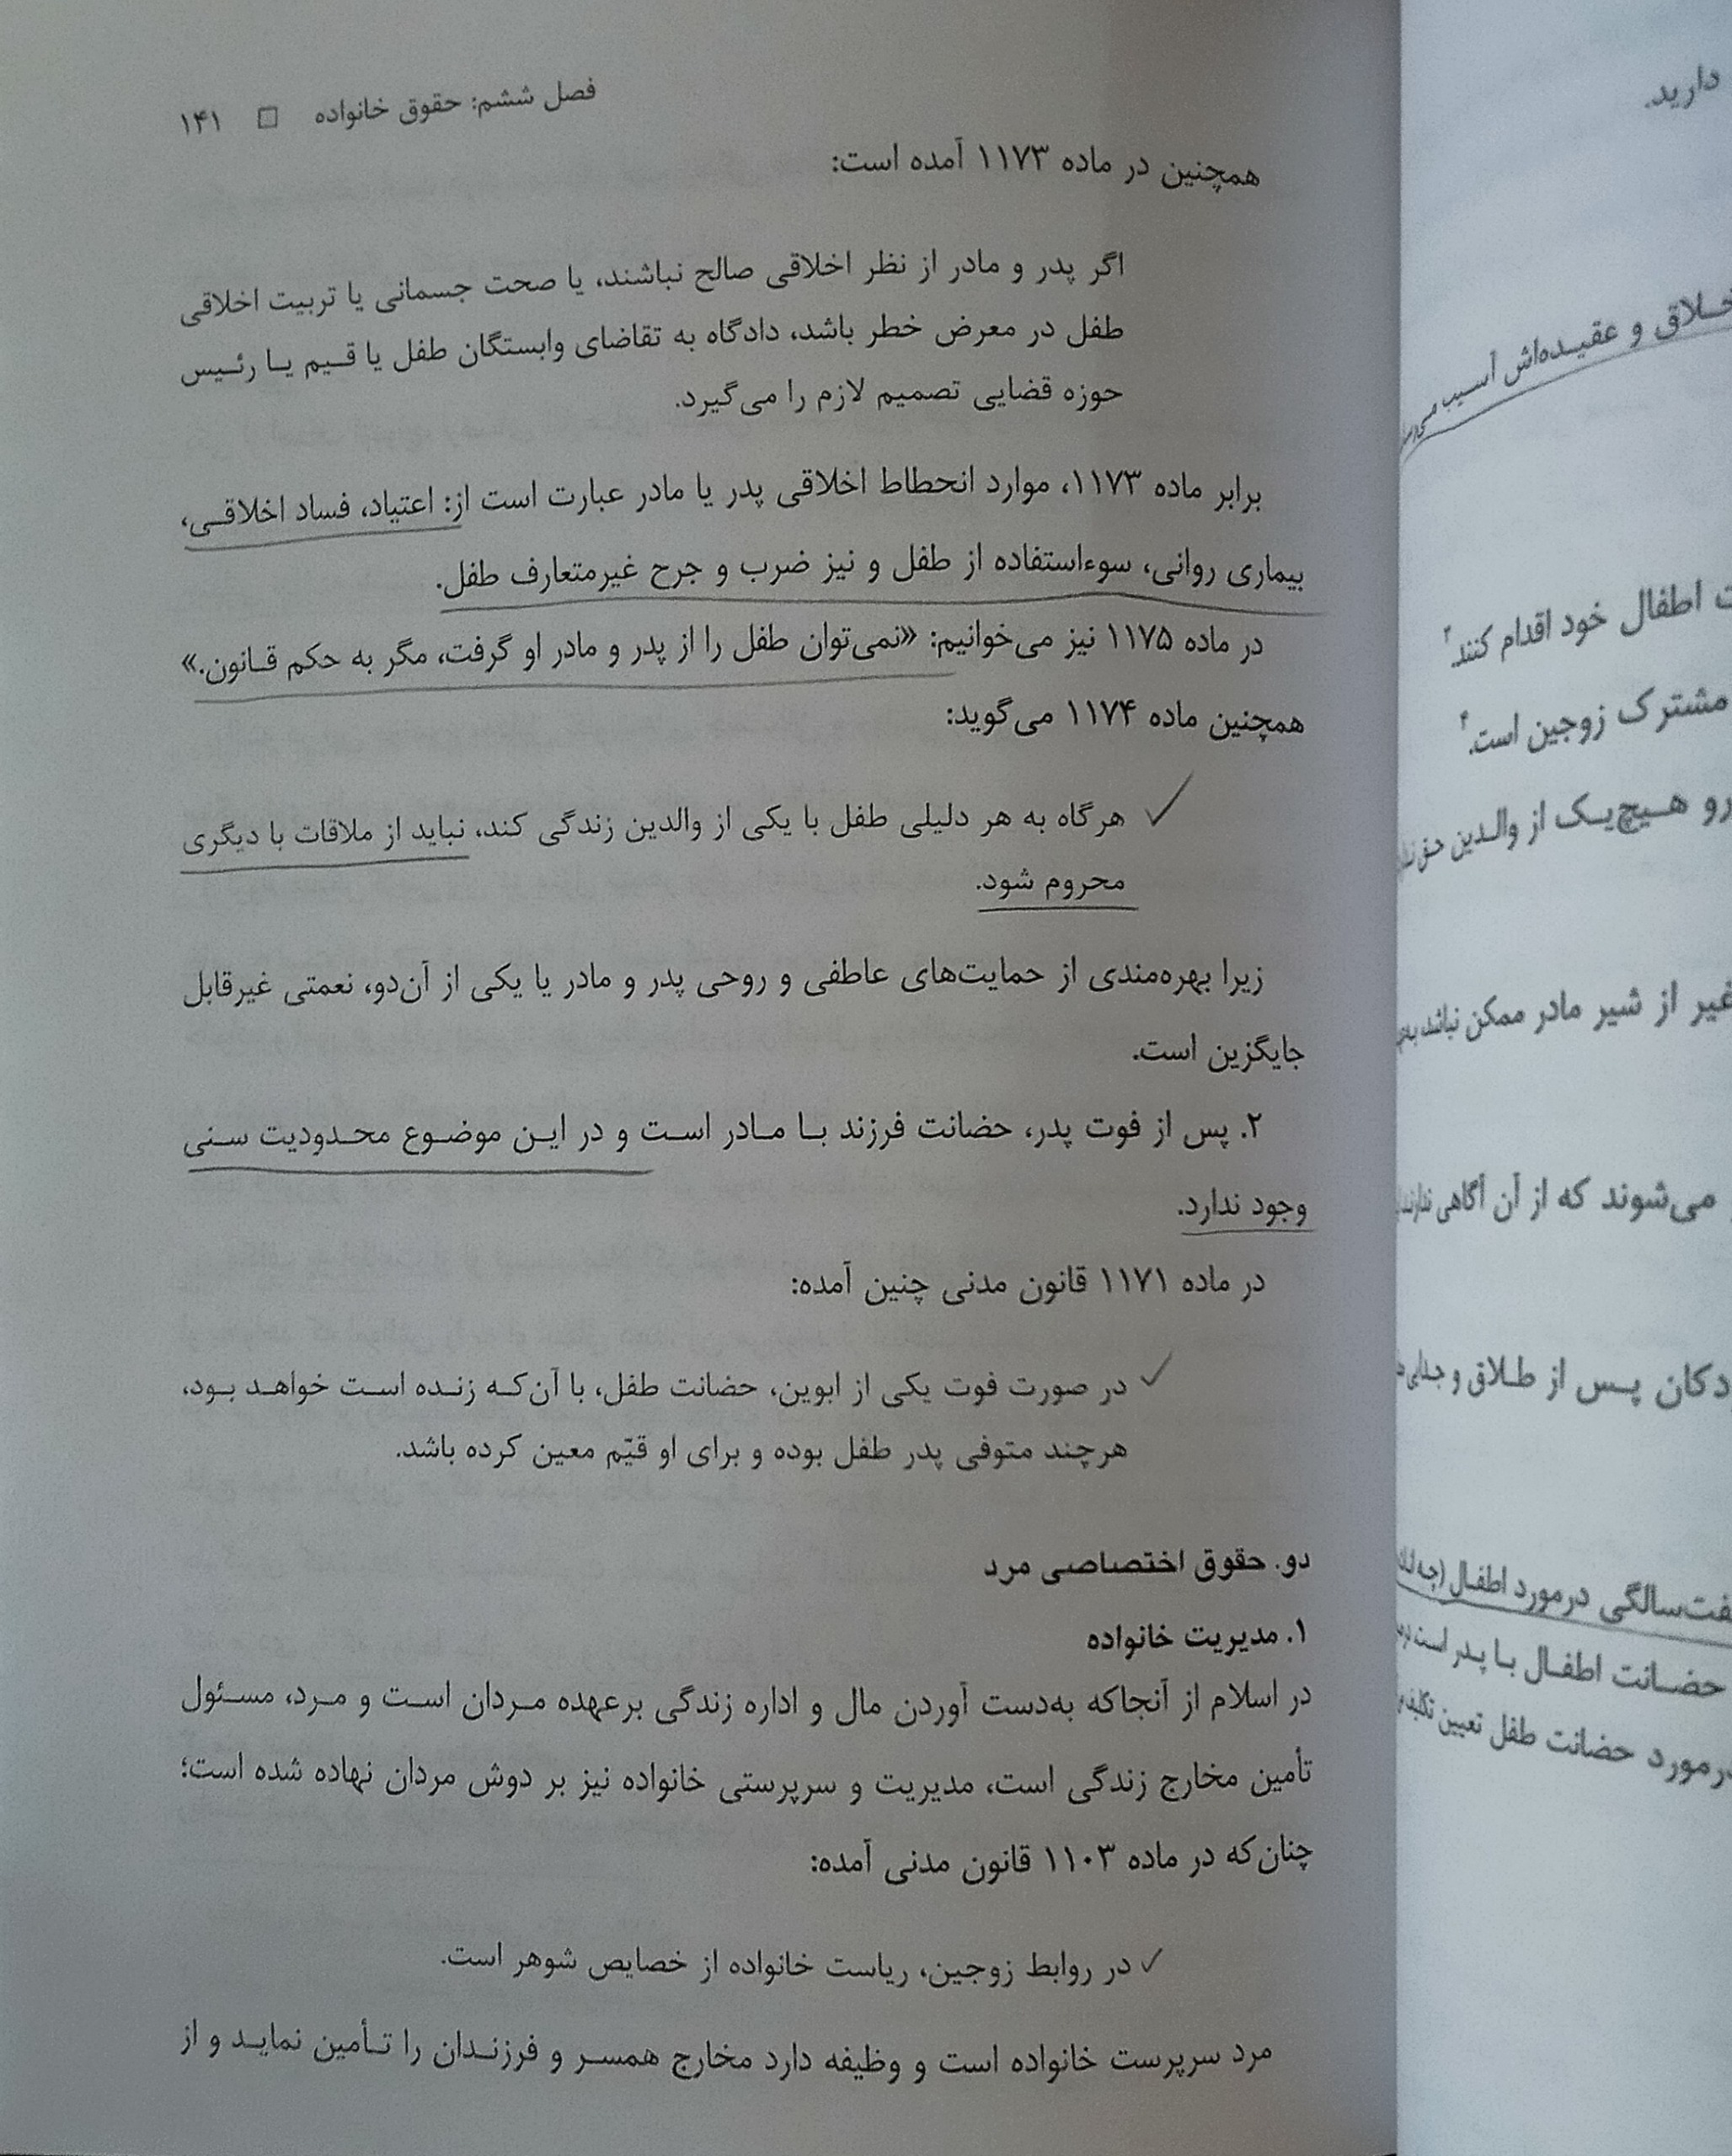 فصل ششم: حقوق خانواده □ ۱۴۱
همچنین در ماده ۱۱۷۳ آمده است:
اگر پدر و مادر از نظر اخلاقی صالح نباشند، یا صحت جسمانی یا تربیت اخلاقی
طفل در معرض خطر باشد، دادگاه به تقاضای وابستگان طفل یا قیم یا رئیس
حوزه قضایی تصمیم لازم را می‌گیرد.
برابر ماده ۱۱۷۳، موارد انحطاط اخلاقی پدر یا مادر عبارت است از: اعتیاد، فساد اخلاقی،
بیماری روانی، سوءاستفاده از طفل و نیز ضرب و جرح غیرمتعارف طفل.
در ماده ۱۱۷۵ نیز می‌خوانیم: «نمی‌توان طفل را از پدر و مادر او گرفت، مگر به حکم قانون.»
همچنین ماده ۱۱۷۴ می‌گوید:
هرگاه به هر دلیلی طفل با یکی از والدین زندگی کند، نباید از ملاقات با دیگری
محروم شود.
زیرا بهره‌مندی از حمایت‌های عاطفی و روحی پدر و مادر یا یکی از آن‌دو، نعمتی غیرقابل
جایگزین است.
۲. پس از فوت پدر، حضانت فرزند با مادر است و در این موضوع محدودیت سنی
وجود ندارد.
در ماده ۱۱۷۱ قانون مدنی چنین آمده:
در صورت فوت یکی از ابوین، حضانت طفل، با آن‌که زنده است خواهد بود،
هرچند متوفی پدر طفل بوده و برای او قیّم معین کرده باشد.
دو. حقوق اختصاصی مرد
۱. مدیریت خانواده
در اسلام از آنجاکه به‌دست آوردن مال و اداره زندگی برعهده مردان است و مرد، مسئول
تأمین مخارج زندگی است، مدیریت و سرپرستی خانواده نیز بر دوش مردان نهاده شده است؛
چنان‌که در ماده ۱۱۰۳ قانون مدنی آمده:
در روابط زوجین، ریاست خانواده از خصایص شوهر است.
مرد سرپرست خانواده است و وظیفه دارد مخارج همسر و فرزندان را تأمین نماید و از
دارید.
و عقیده‌اش آسیب
اطفال خود اقدام کنند.
مشترک زوجین است.
هیچ‌یک از والدین
غیر از شیر مادر ممکن نباشد
می‌شوند که از آن آگاهی
پس از طلاق و
درمورد اطفال
حضانت اطفال با پدر است
حضانت طفل تعیین